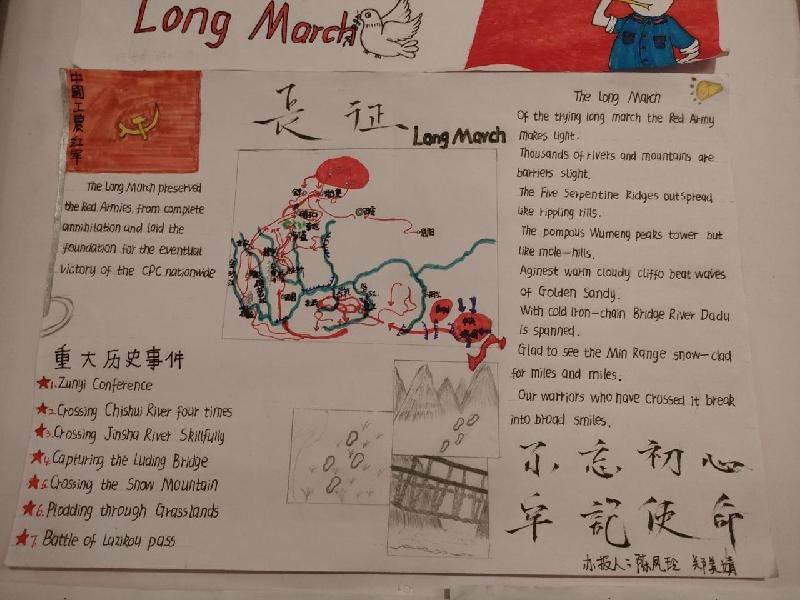 Long March
中國工農红軍
長征
Long March
The Long March preserved
the Red Armies from complete
annihilation and laid the
foundation for the eventual
victory of the CPC nationwide
重大历史事件
1. Zunyi Conference
2. Crossing Chishui River four times
3. Crossing Jinsha River Skillfully
4. Capturing the Luding Bridge
5. Crossing the Snow Mountain
6. Plodding through Grasslands
7. Battle of Lazikou pass
The Long March
Of the trying long march the Red Army
makes light.
Thousands of rivers and mountains are
barriers slight.
The Five Serpentine Ridges outspread
like rippling rills.
The pompous Wumeng peaks tower but
like mole-hills.
Aginest warm cloudy cliffs beat waves
of Golden Sandy.
With cold iron-chain Bridge River Dadu
is spanned.
Glad to see the Min Range snow-clad
for miles and miles.
Our warriors who have crossed it break
into broad smiles.
不忘初心
牢記使命
办报人：陈凤玲